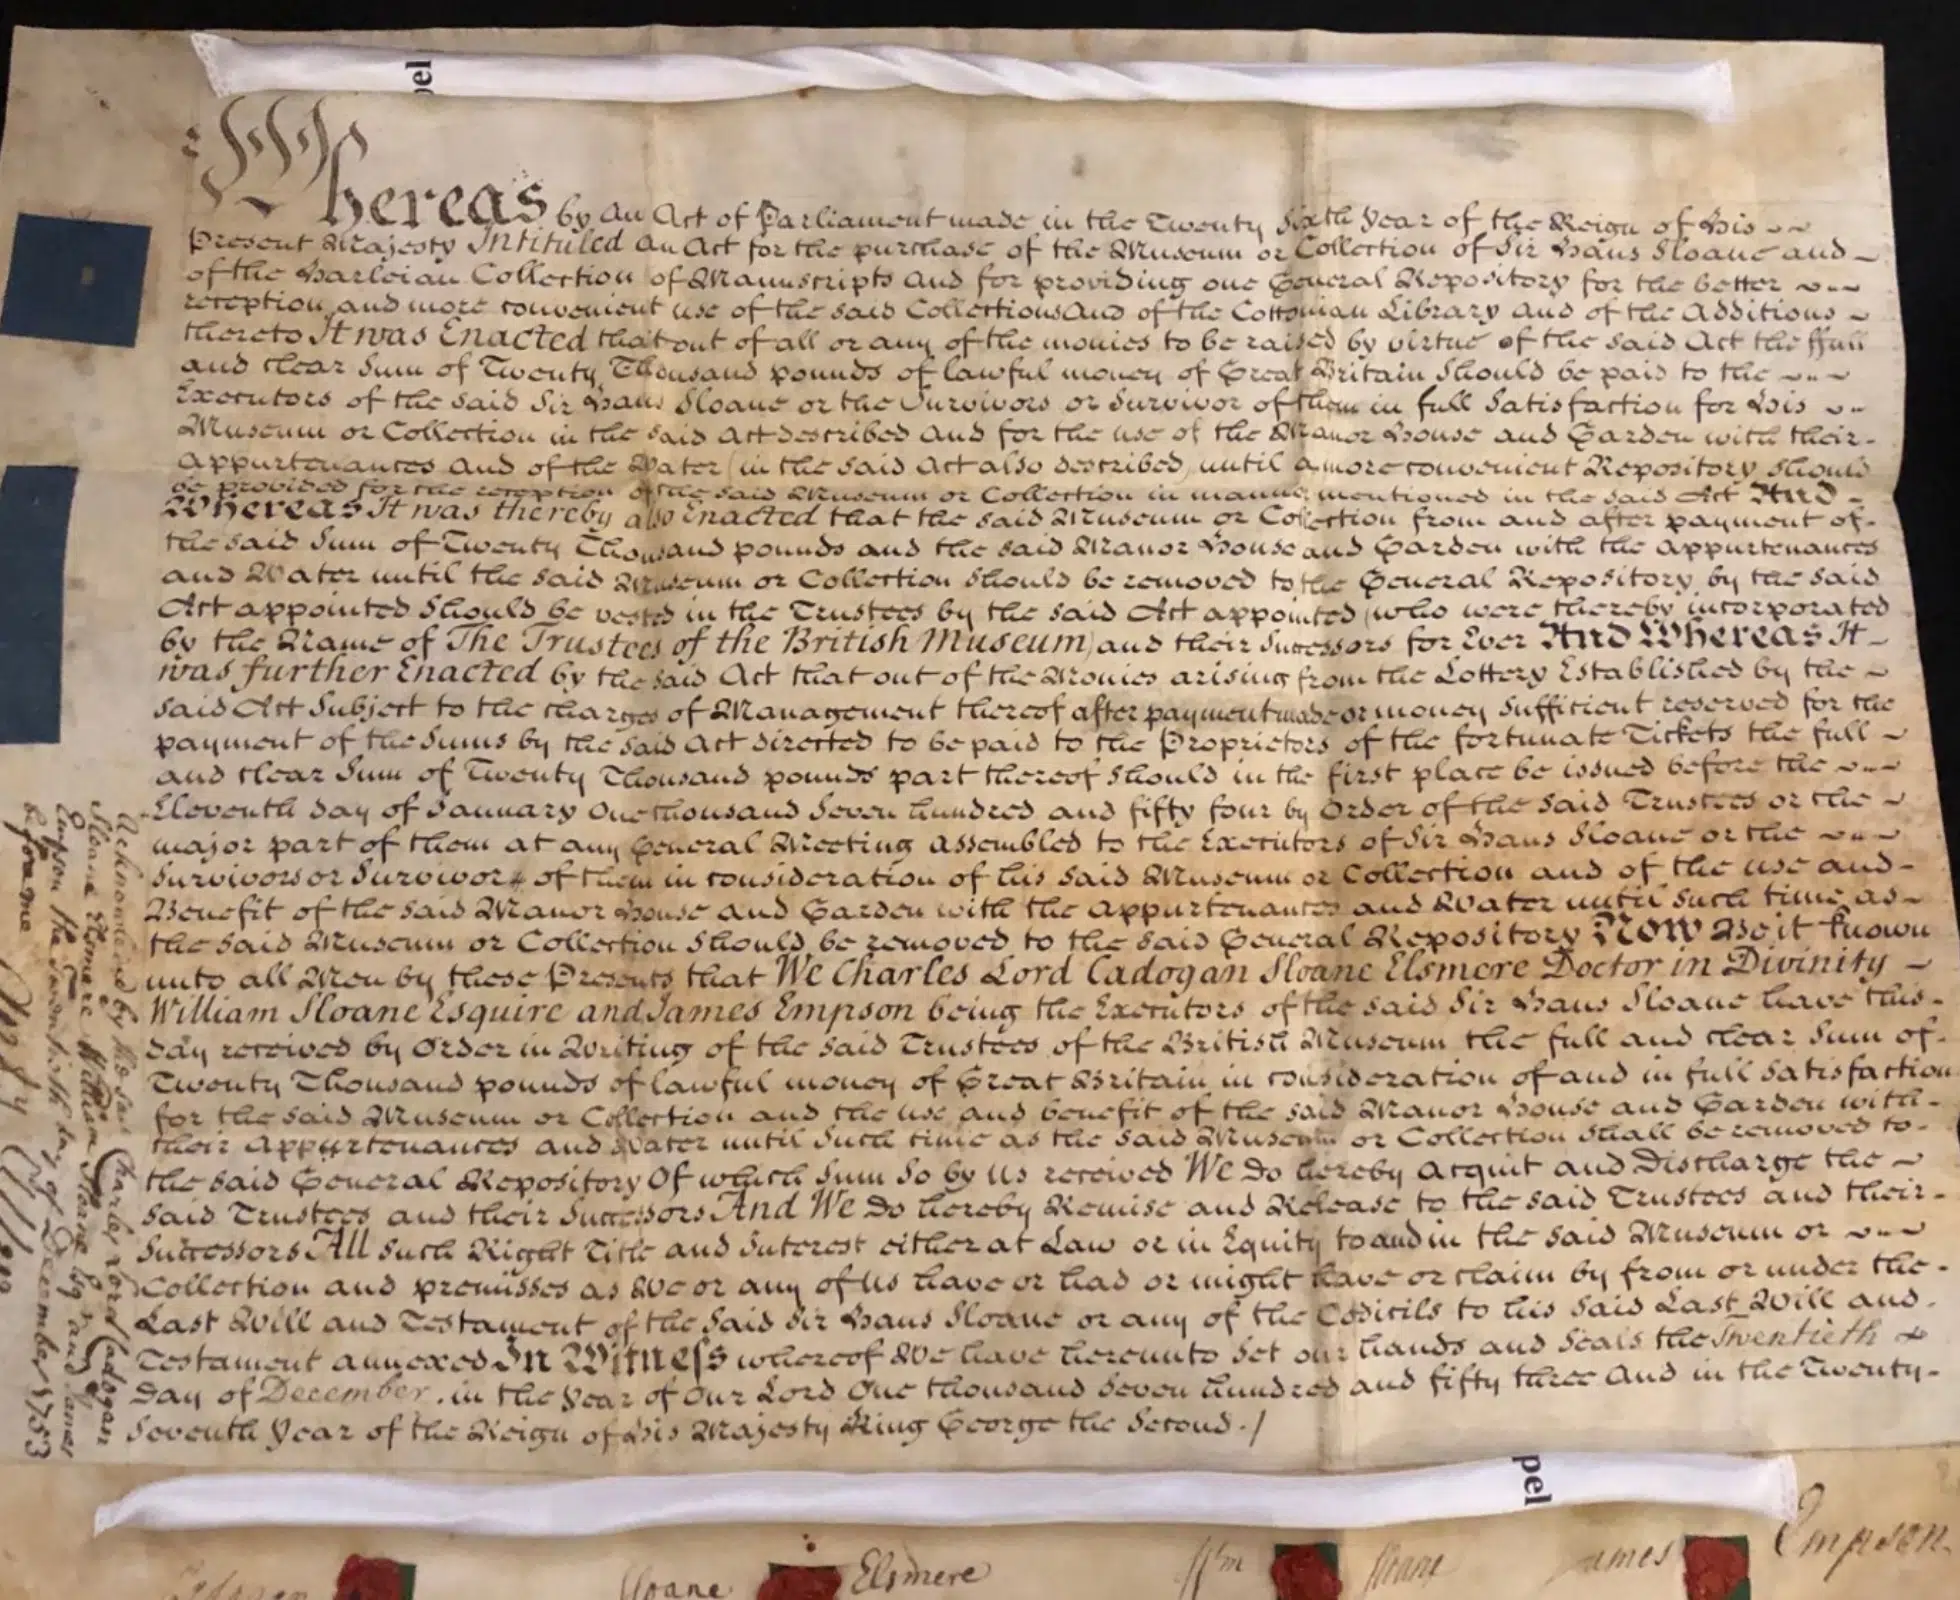 pel
Whereas by An Act of Parliament made in the Twenty Sixth Year of the Reign of His
Present Majesty Intituled An Act for the purchase of the Museum or Collection of Sir Hans Sloane and
of the Harleian Collection of Manuscripts And for providing one General Repository for the better
reception and more convenient use of the said Collections And of the Cottonian Library and of the Additions
thereto It was Enacted that out of all or any of the monies to be raised by virtue of the said Act the ffull
and clear Sum of Twenty Thousand pounds of lawful money of Great Britain Should be paid to the
Executors of the said Sir Hans Sloane or the Survivors or Survivor of them in full Satisfaction for his
Museum or Collection in the said Act described And for the use of the Manor House and Garden with their
Appurtenances And of the Water (in the said Act also described) until a more convenient Repository should
be provided for the reception of the said Museum or Collection in manner mentioned in the said Act And
Whereas It was thereby also Enacted that the said Museum or Collection from and after payment of
the said Sum of Twenty Thousand pounds and the said Manor House and Garden with the appurtenances
and Water until the said Museum or Collection should be removed to the General Repository by the said
Act appointed Should be vested in the Trustees by the said Act appointed (who were thereby incorporated
by the Name of The Trustees of the British Museum) and their Successors for Ever And Whereas It
was further Enacted by the said Act that out of the Monies arising from the Lottery Established by the
said Act Subject to the charges of Management thereof after payment made or money sufficient reserved for the
payment of the Sums by the said Act directed to be paid to the Proprietors of the fortunate Tickets the full
and clear Sum of Twenty Thousand pounds part thereof should in the first place be issued before the
Eleventh day of January One thousand Seven hundred and fifty four by Order of the said Trustees or the
major part of them at any General Meeting assembled to the Executors of Sir Hans Sloane or the
Survivors or Survivor of them in consideration of his said Museum or Collection and of the use and
Benefit of the said Manor House and Garden with the appurtenances and Water until such time as
the said Museum or Collection should be removed to the said General Repository Now Be it known
unto all Men by these Presents that We Charles Lord Cadogan Sloane Elsmere Doctor in Divinity
William Sloane Esquire and James Empson being the Executors of the said Sir Hans Sloane have this
day received by Order in Writing of the said Trustees of the British Museum the full and clear Sum of
Twenty Thousand pounds of lawful money of Great Britain in consideration of and in full satisfaction
for the said Museum or Collection and the use and benefit of the said Manor House and Garden with
their Appurtenances and Water until such time as the said Museum or Collection shall be removed to
the said General Repository Of which Sum So by Us received We Do hereby acquit and Discharge the
said Trustees and their Successors And We Do hereby Remise and Release to the said Trustees and their
Successors All such Right Title and Interest either at Law or in Equity to and in the said Museum or
Collection and premisses as We or any of Us have or had or might have or claim by from or under the
Last Will and Testament of the said Sir Hans Sloane or any of the Codicils to his said Last Will and
Testament annexed In Witness whereof We have hereunto set our hands and Seals the Twentieth
Day of December in the Year of Our Lord One thousand Seven hundred and fifty three And in the Twenty
Seventh Year of the Reign of His Majesty King George the Second
Acknowledged by the said Charles Lord Cadogan
Sloane Elsmere William Sloane Esq and James
Empson the twentieth day of December 1753
before me
pel
Cadogan Sloane Elsmere Wm Sloane James Empson